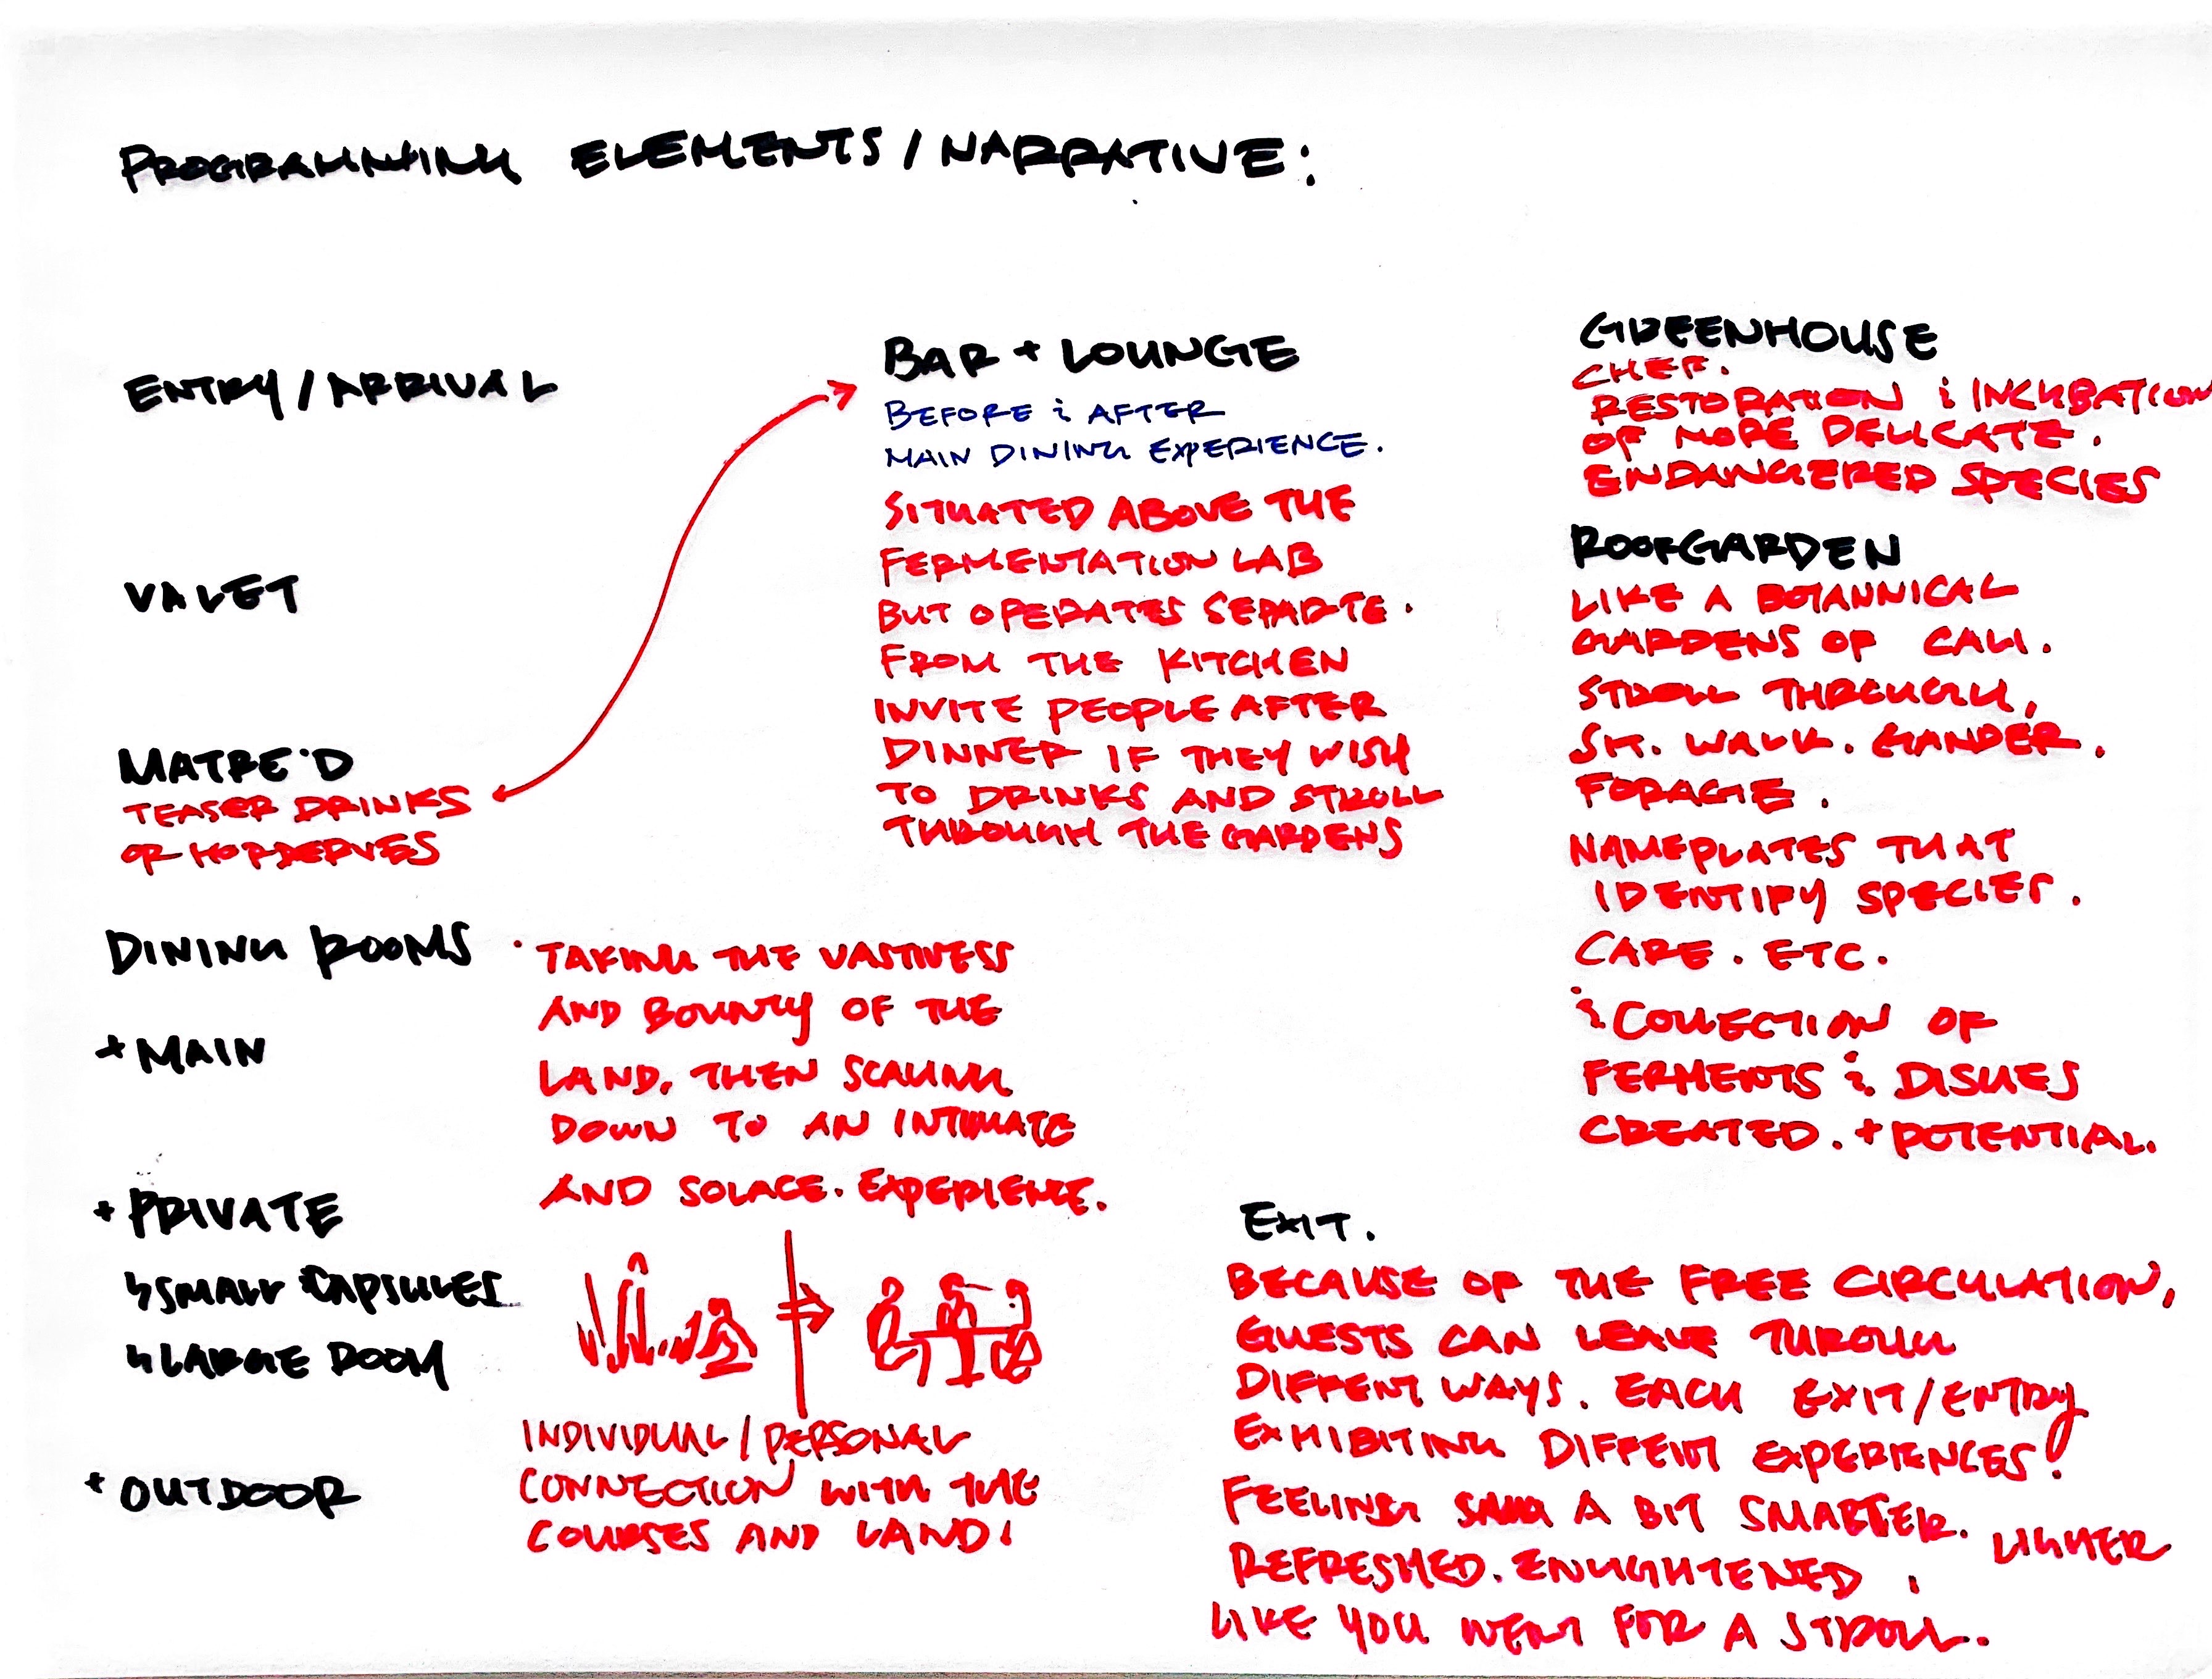 PROGRAMMING ELEMENTS / NARRATIVE:
ENTRY / ARRIVAL
VALET
MATRE'D
TEASER DRINKS
OR HORDERVES
DINING ROOMS
+ MAIN
+ PRIVATE
↳ SMALL CAPSULES
↳ LARGE ROOM
+ OUTDOOR
• TAKING THE VASTNESS
AND BOUNTY OF THE
LAND, THEN SCALING
DOWN TO AN INTIMATE
AND SOLACE. EXPERIENCE.
INDIVIDUAL / PERSONAL
CONNECTION WITH THE
COURSES AND LAND!
BAR + LOUNGE
BEFORE & AFTER
MAIN DINING EXPERIENCE.
SITUATED ABOVE THE
FERMENTATION LAB
BUT OPERATES SEPARTE.
FROM THE KITCHEN
INVITE PEOPLE AFTER
DINNER IF THEY WISH
TO DRINKS AND STROLL
THROUGH THE GARDENS
GREENHOUSE
CHEF.
RESTORATION & INCUBATION
OF MORE DELICATE.
ENDANGERED SPECIES
ROOFGARDEN
LIKE A BOTANNICAL
GARDENS OF CALI.
STROLL THROUGH,
SIT. WALK. GANDER.
FORAGE.
NAMEPLATES THAT
IDENTIFY SPECIES.
CARE. ETC.
& COLLECTION OF
FERMENTS & DISHES
CREATED. + POTENTIAL.
EXIT.
BECAUSE OF THE FREE CIRCULATION,
GUESTS CAN LEAVE THROUGH
DIFFENT WAYS. EACH EXIT/ENTRY
EXHIBITING DIFFENT EXPERIENCES!
FEELING A BIT SMARTER. LIGHTER
REFRESHED. ENLIGHTENED,
LIKE YOU WENT FOR A STROLL.